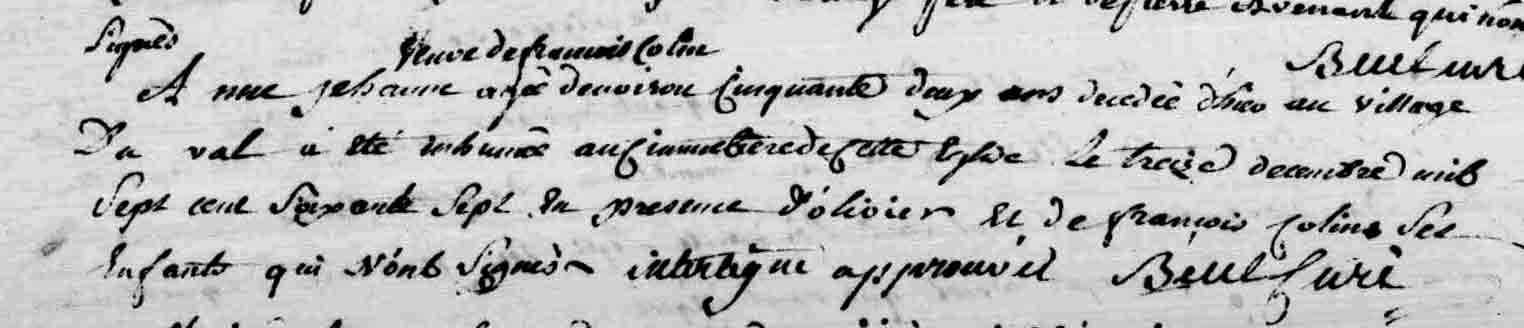 père et de pierre Avenant qui n'ont
Signès
Beul Curé
veuve de françois Coline
Anne Jehanne agèe denviron Cinquante deux ans decedée d'hier au village
Du val a eté inhumée au Cimmetiere de Cette Eglise le treize decembre mil
Sept cent Soixante Sept En presence d'olivier Et de françois Coline Ses
Enfants qui N'ont Signès interligne approuvèe Beul Curé